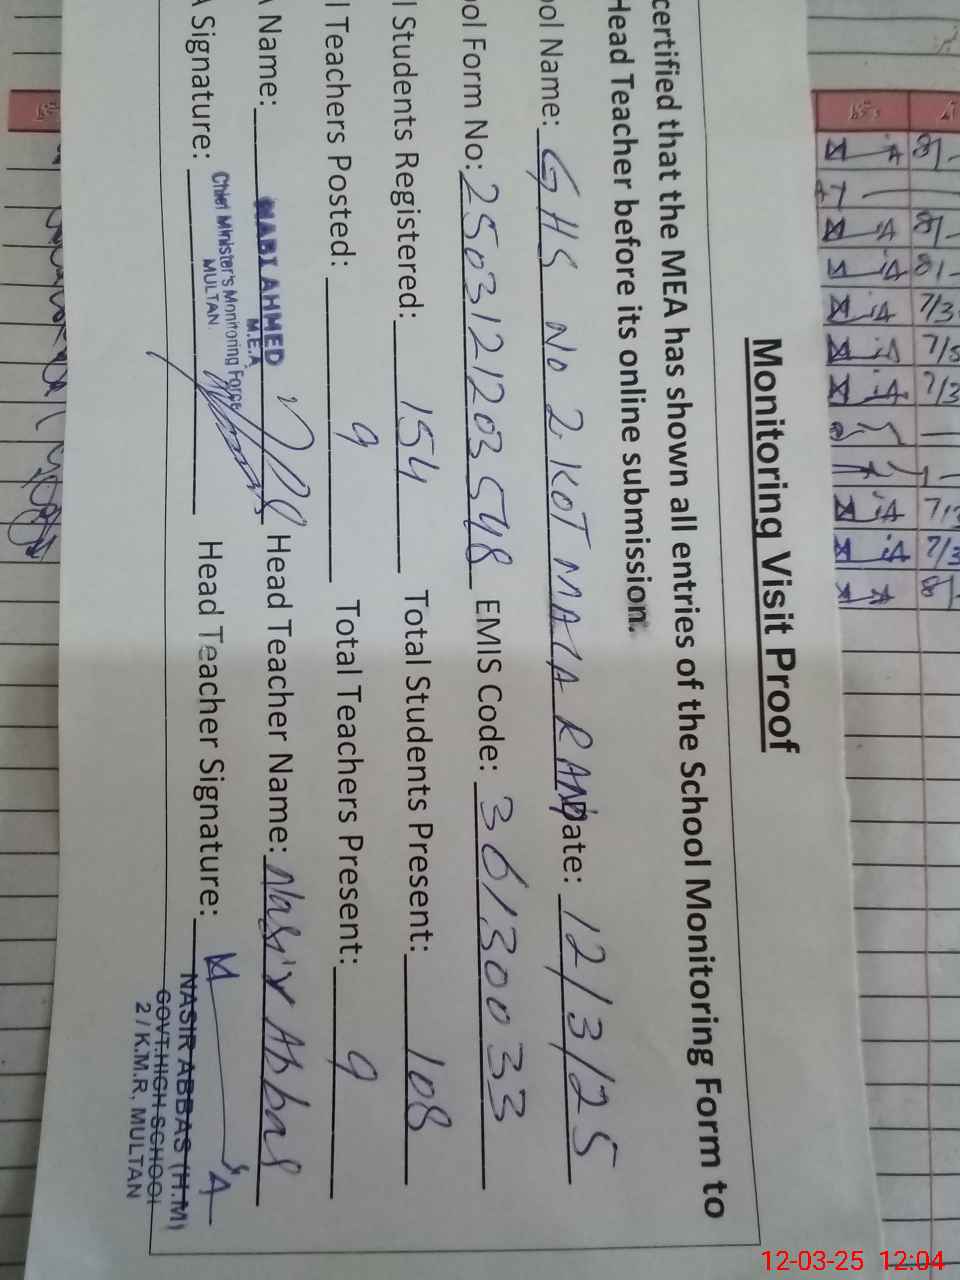 Monitoring Visit Proof
certified that the MEA has shown all entries of the School Monitoring Form to
Head Teacher before its online submission.
ool Name: GHS No 2 KOT MALA RAM Date: 12/3/25
ool Form No: 2503121203548 EMIS Code: 36130033
l Students Registered: 154 Total Students Present: 108
l Teachers Posted: 9 Total Teachers Present: 9
A Name: NABI AHMED Head Teacher Name: Nasir Abbas
M.E.A
Chief Minister's Monitoring Force
MULTAN.
A Signature: Head Teacher Signature:
NASIR ABBAS (H.M)
GOVT.HIGH SCHOOL
2/K.M.R, MULTAN
7/3
7/3
12-03-25 12:04